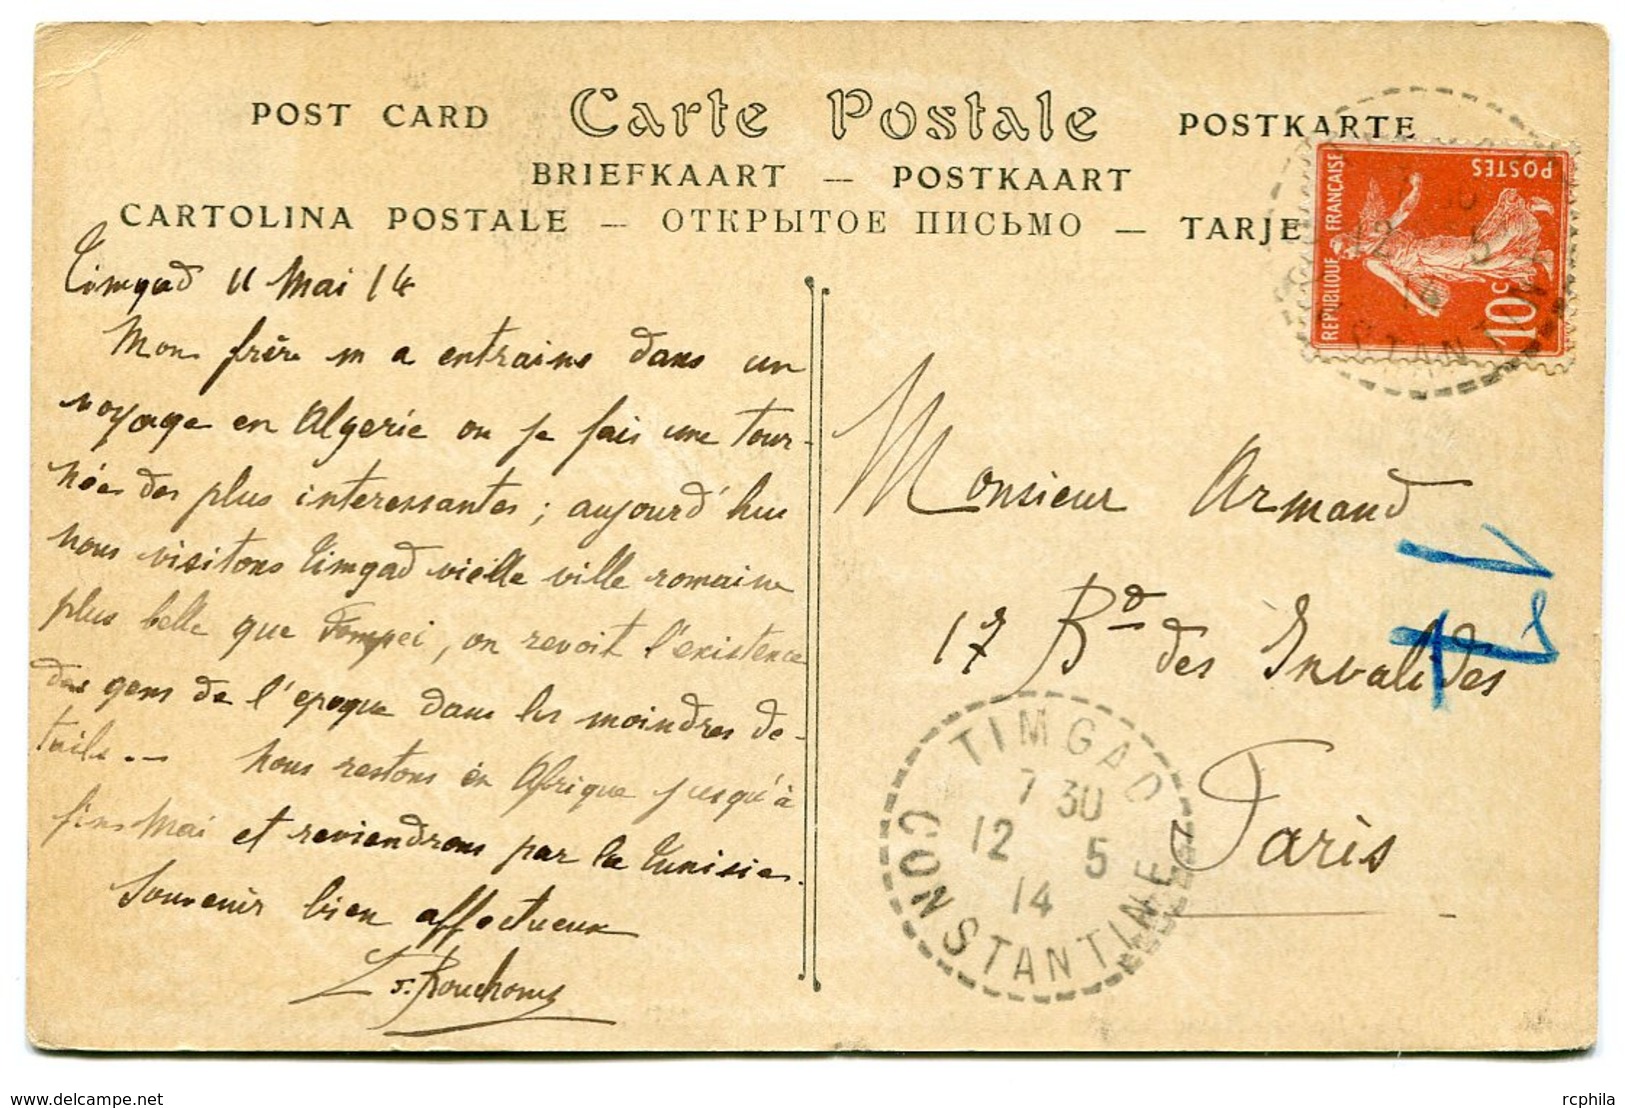 POST CARD Carte Postale POSTKARTE
BRIEFKAART — POSTKAART
CARTOLINA POSTALE — ОТКРЫТОЕ ПИСЬМО — TARJE
REPUBLIQUE FRANÇAISE
POSTES
10c
Timgad 11 Mai 14
Mon frère m a entrainé dans un
voyage en Algérie ou je fais une tour-
née des plus interessantes ; aujourd'hui
nous visitons Timgad vieille ville romaine
plus belle que Pompei, on revoit l'existence
des gens de l'epoque dans les moindres dé-
tails. — Nous restons en Afrique jusqu'à
fin Mai et reviendrons par la Tunisie.
Souvenir bien affectueux
Monsieur Armand
17 Bd des Invalides
Paris
TIMGAD
7 30
12 5
14
CONSTANTINE
rcphila